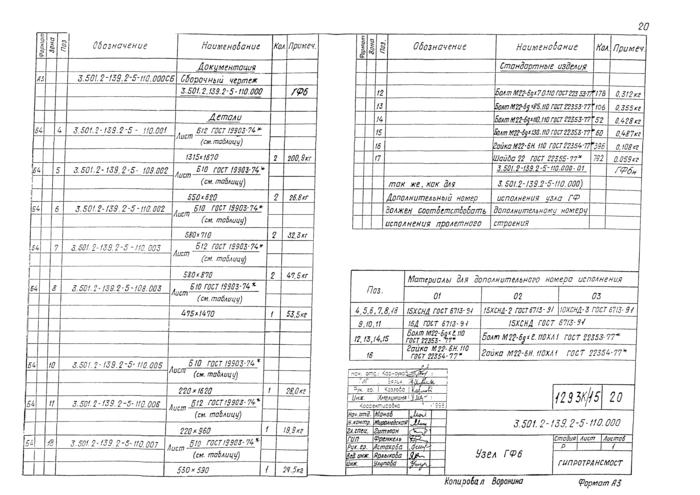 20
Формат Зона Поз. Обозначение Наименование Кол Примеч.
Документация
А3 3.501.2-139.2-5-110.000СБ Сборочный чертеж
3.501.2.139.2-5-110.000 ГФ6
Детали
Б4 4 3.501.2-139.2-5-110.001 Лист Б12 ГОСТ 19903-74*
(см. таблицу)
1315×1670 2 200,9кг
Б4 5 3.501.2-139.2-5-109.002 Лист Б10 ГОСТ 19903-74*
(см. таблицу)
550×620 2 26,8кг
Б4 6 3.501.2-139.2-5-110.002 Лист Б10 ГОСТ 19903-74*
(см. таблицу)
580×710 2 32,3кг
Б4 7 3.501.2-139.2-5-110.003 Лист Б12 ГОСТ 19903-74*
(см. таблицу)
580×870 2 47,5кг
Б4 8 3.501.2-139.2-5-109.003 Лист Б10 ГОСТ 19903-74*
(см. таблицу)
475×1470 1 53,5кг
Б4 10 3.501.2-139.2-5-110.005 Лист Б10 ГОСТ 19903-74*
(см. таблицу)
220×1620 1 28,0кг
Б4 11 3.501.2-139.2-5-110.006 Лист Б12 ГОСТ 19903-74*
(см. таблицу)
220×960 1 19,9кг
Б4 18 3.501.2-139.2-5-110.007 Лист Б10 ГОСТ 19903-74*
(см. таблицу)
530×590 1 24,5кг
Формат Зона Поз. Обозначение Наименование Кол. Примеч.
Стандартные изделия
12 Болт М22-6g×70.110 ГОСТ 22353-77* 178 0,312кг
13 ГОСТ 22353-77* 106 0,355кг
14 ГОСТ 22353-77* 52 0,428кг
15 ГОСТ 22353-77* 60 0,487кг
16 Гайка М22-6Н.110 ГОСТ 22354-77* 396 0,108кг
17 Шайба 22 ГОСТ 22355-77* 792 0,059кг
3.501.2-139.2-5-110.000-01 ГФ6н
так же, как для 3.501.2-139.2-5-110.000)
Дополнительный номер исполнения узла ГФ
должен соответствовать дополнительному номеру
исполнения пролетного строения
Поз. Материалы для дополнительного номера исполнения
01 02 03
4,5,6,7,8,18 15ХСНД ГОСТ 6713-91 15ХСНД-2 ГОСТ 6713-91 10ХСНД-3 ГОСТ 6713-91
9,10,11 16Д ГОСТ 6713-91 15ХСНД ГОСТ 6713-91
12,13,14,15 Болт М22-6g×ℓ.110 ГОСТ 22353-77* Болт М22-6g×ℓ.110ХЛ1 ГОСТ 22353-77*
16 Гайка М22-6Н.110 ГОСТ 22354-77* Гайка М22-6Н.110ХЛ1 ГОСТ 22354-77*
Рук. гр. Козлова
Инж. Хмелюшина
Корректировка
1293К/15 20
Нач. отд.
Н.контр.
Гл.спец. Литман
ГИП Френкель
Рук. гр. Астахова
Вед. инж. Ярлыкова
Инж. Улупова
3.501.2-139.2-5-110.000
Узел ГФ6
Стадия Лист Листов
Р 1
ГИПРОТРАНСМОСТ
Копировал Воронина Формат А3